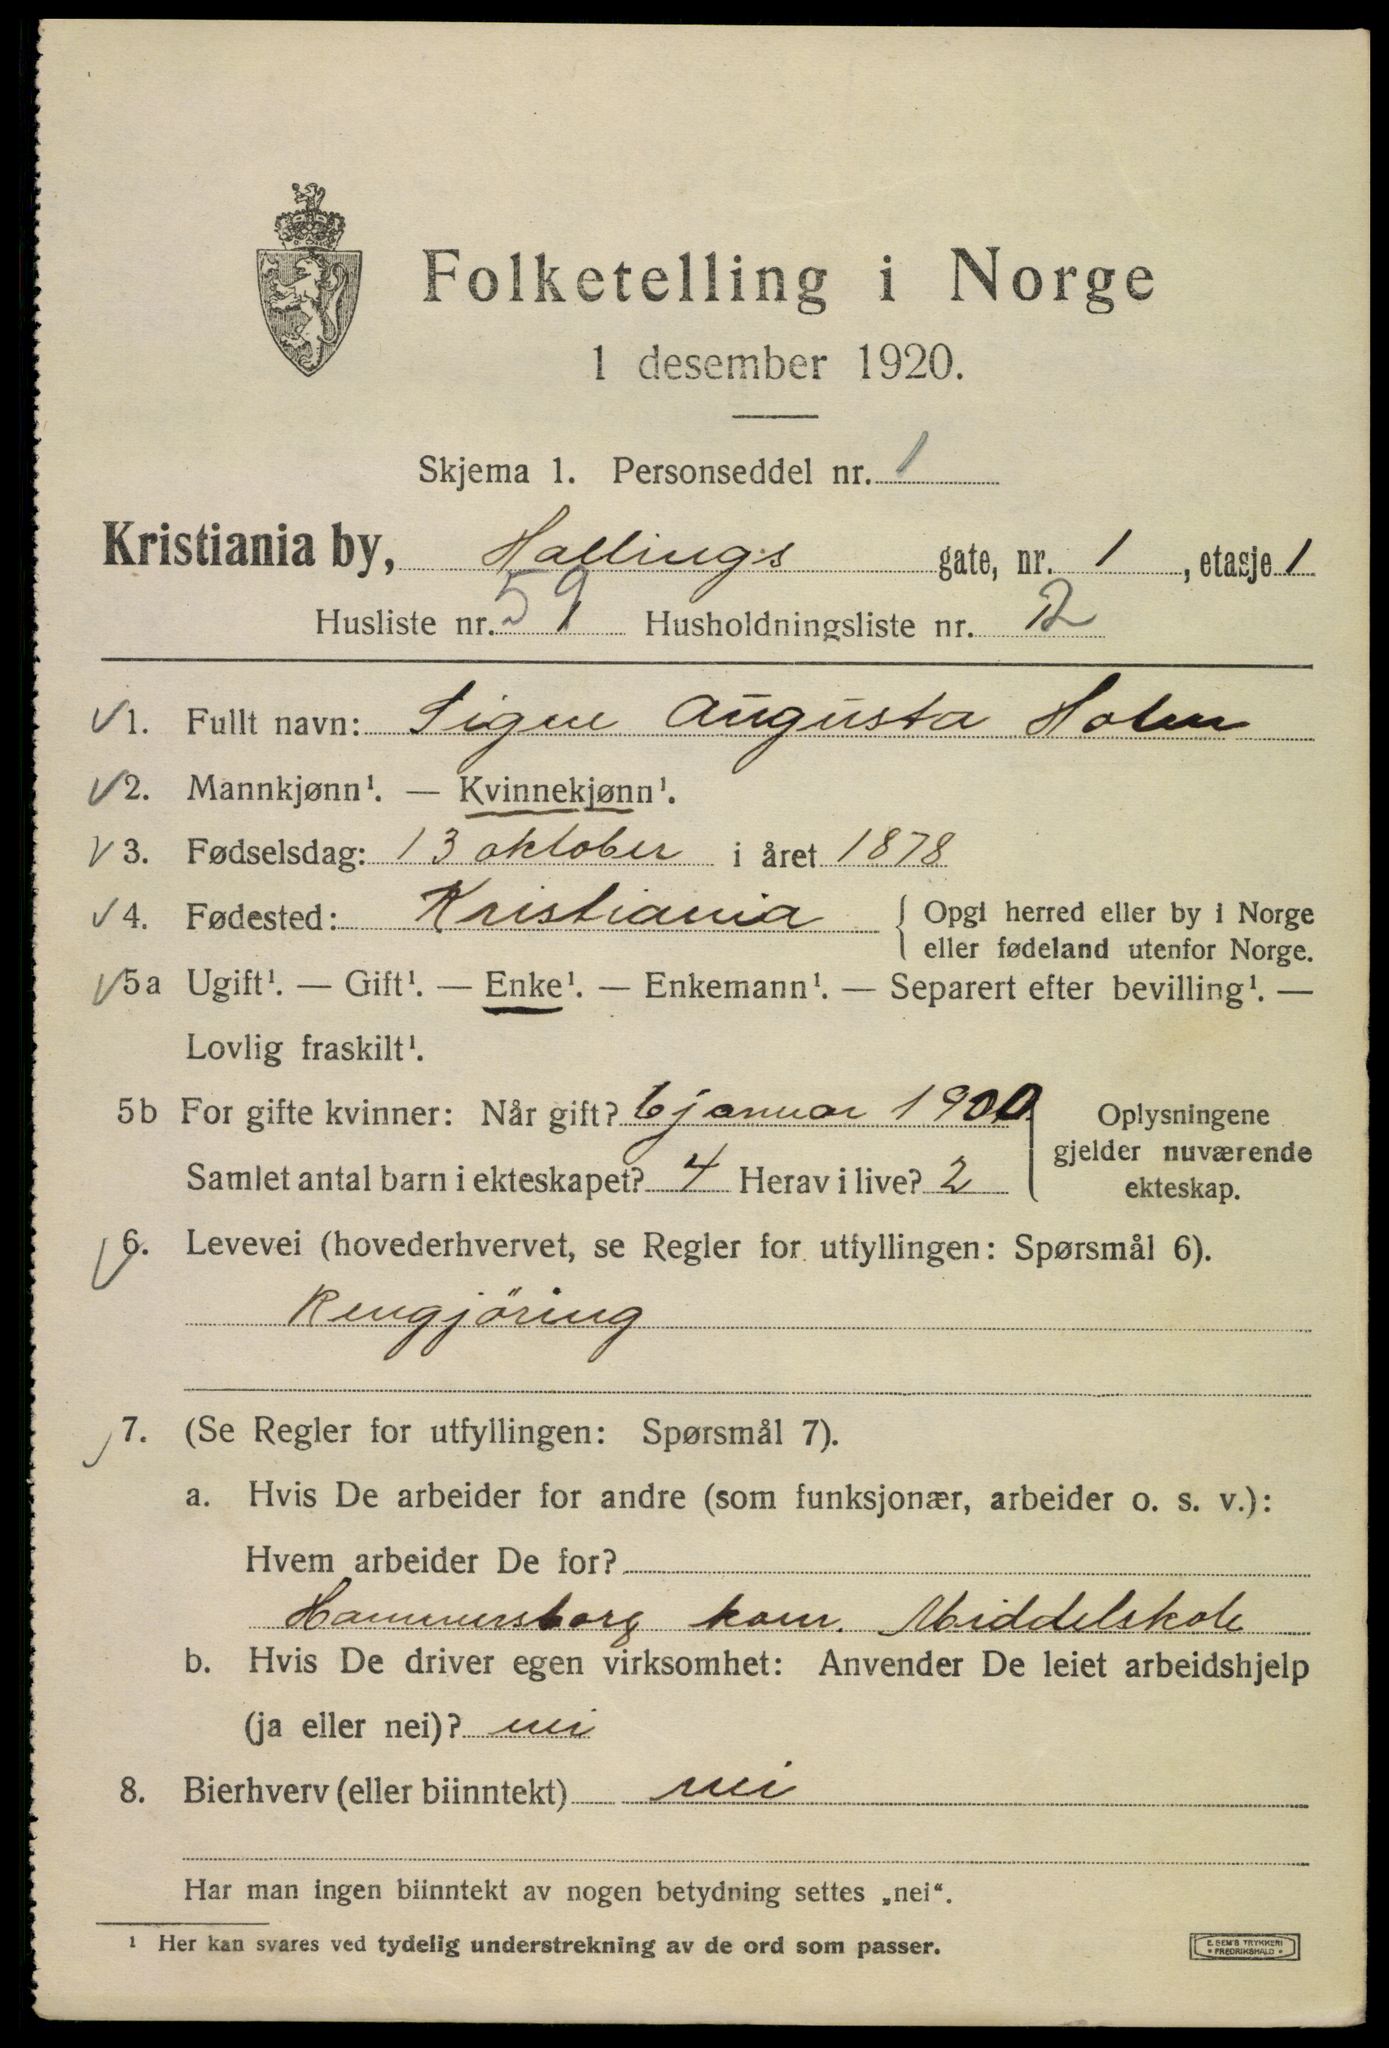 Folketelling i Norge
1 desember 1920.
Skjema 1. Personseddel nr. 1
Kristiania by, Hallings gate, nr. 1, etasje 1
Husliste nr. 59 1 Husholdningsliste nr. 12
1. Fullt navn: Signe Augusta Holm
2. Mannkjønn¹. — Kvinnekjønn¹.
3. Fødselsdag: 13 oktober i året 1878
4. Fødested: Kristiania { Opgi herred eller by i Norge
eller fødeland utenfor Norge.
5a Ugift¹. — Gift¹. — Enke¹. — Enkemann¹. — Separert efter bevilling¹. —
Lovlig fraskilt¹.
5b For gifte kvinner: Når gift? 6 januar 1900 Oplysningene
gjelder nuværende
Samlet antal barn i ekteskapet? 4 Herav i live? 2 ekteskap.
6. Levevei (hovederhvervet, se Regler for utfyllingen: Spørsmål 6).
Rengjöring
7. (Se Regler for utfyllingen: Spørsmål 7).
a. Hvis De arbeider for andre (som funksjonær, arbeider o. s. v.):
Hvem arbeider De for?
Hammersborg kom. Middelskole
b. Hvis De driver egen virksomhet: Anvender De leiet arbeidshjelp
(ja eller nei)? nei
8. Bierhverv (eller biinntekt) nei
Har man ingen biinntekt av nogen betydning settes „nei“.
¹ Her kan svares ved tydelig understrekning av de ord som passer.
E. SEM'S TRYKKERI
• FREDRIKSHALD •